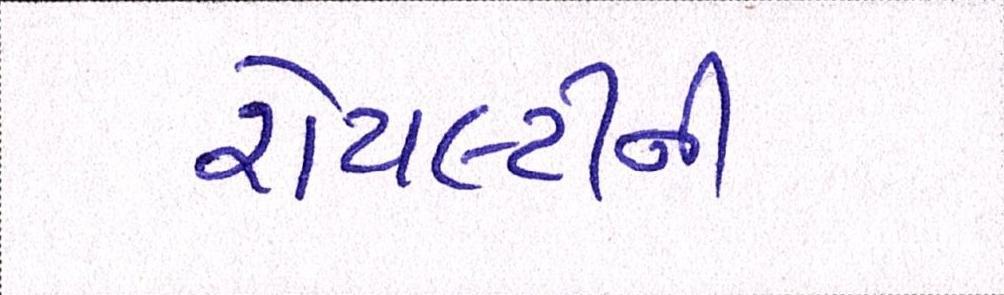 રોયલ્ટીની